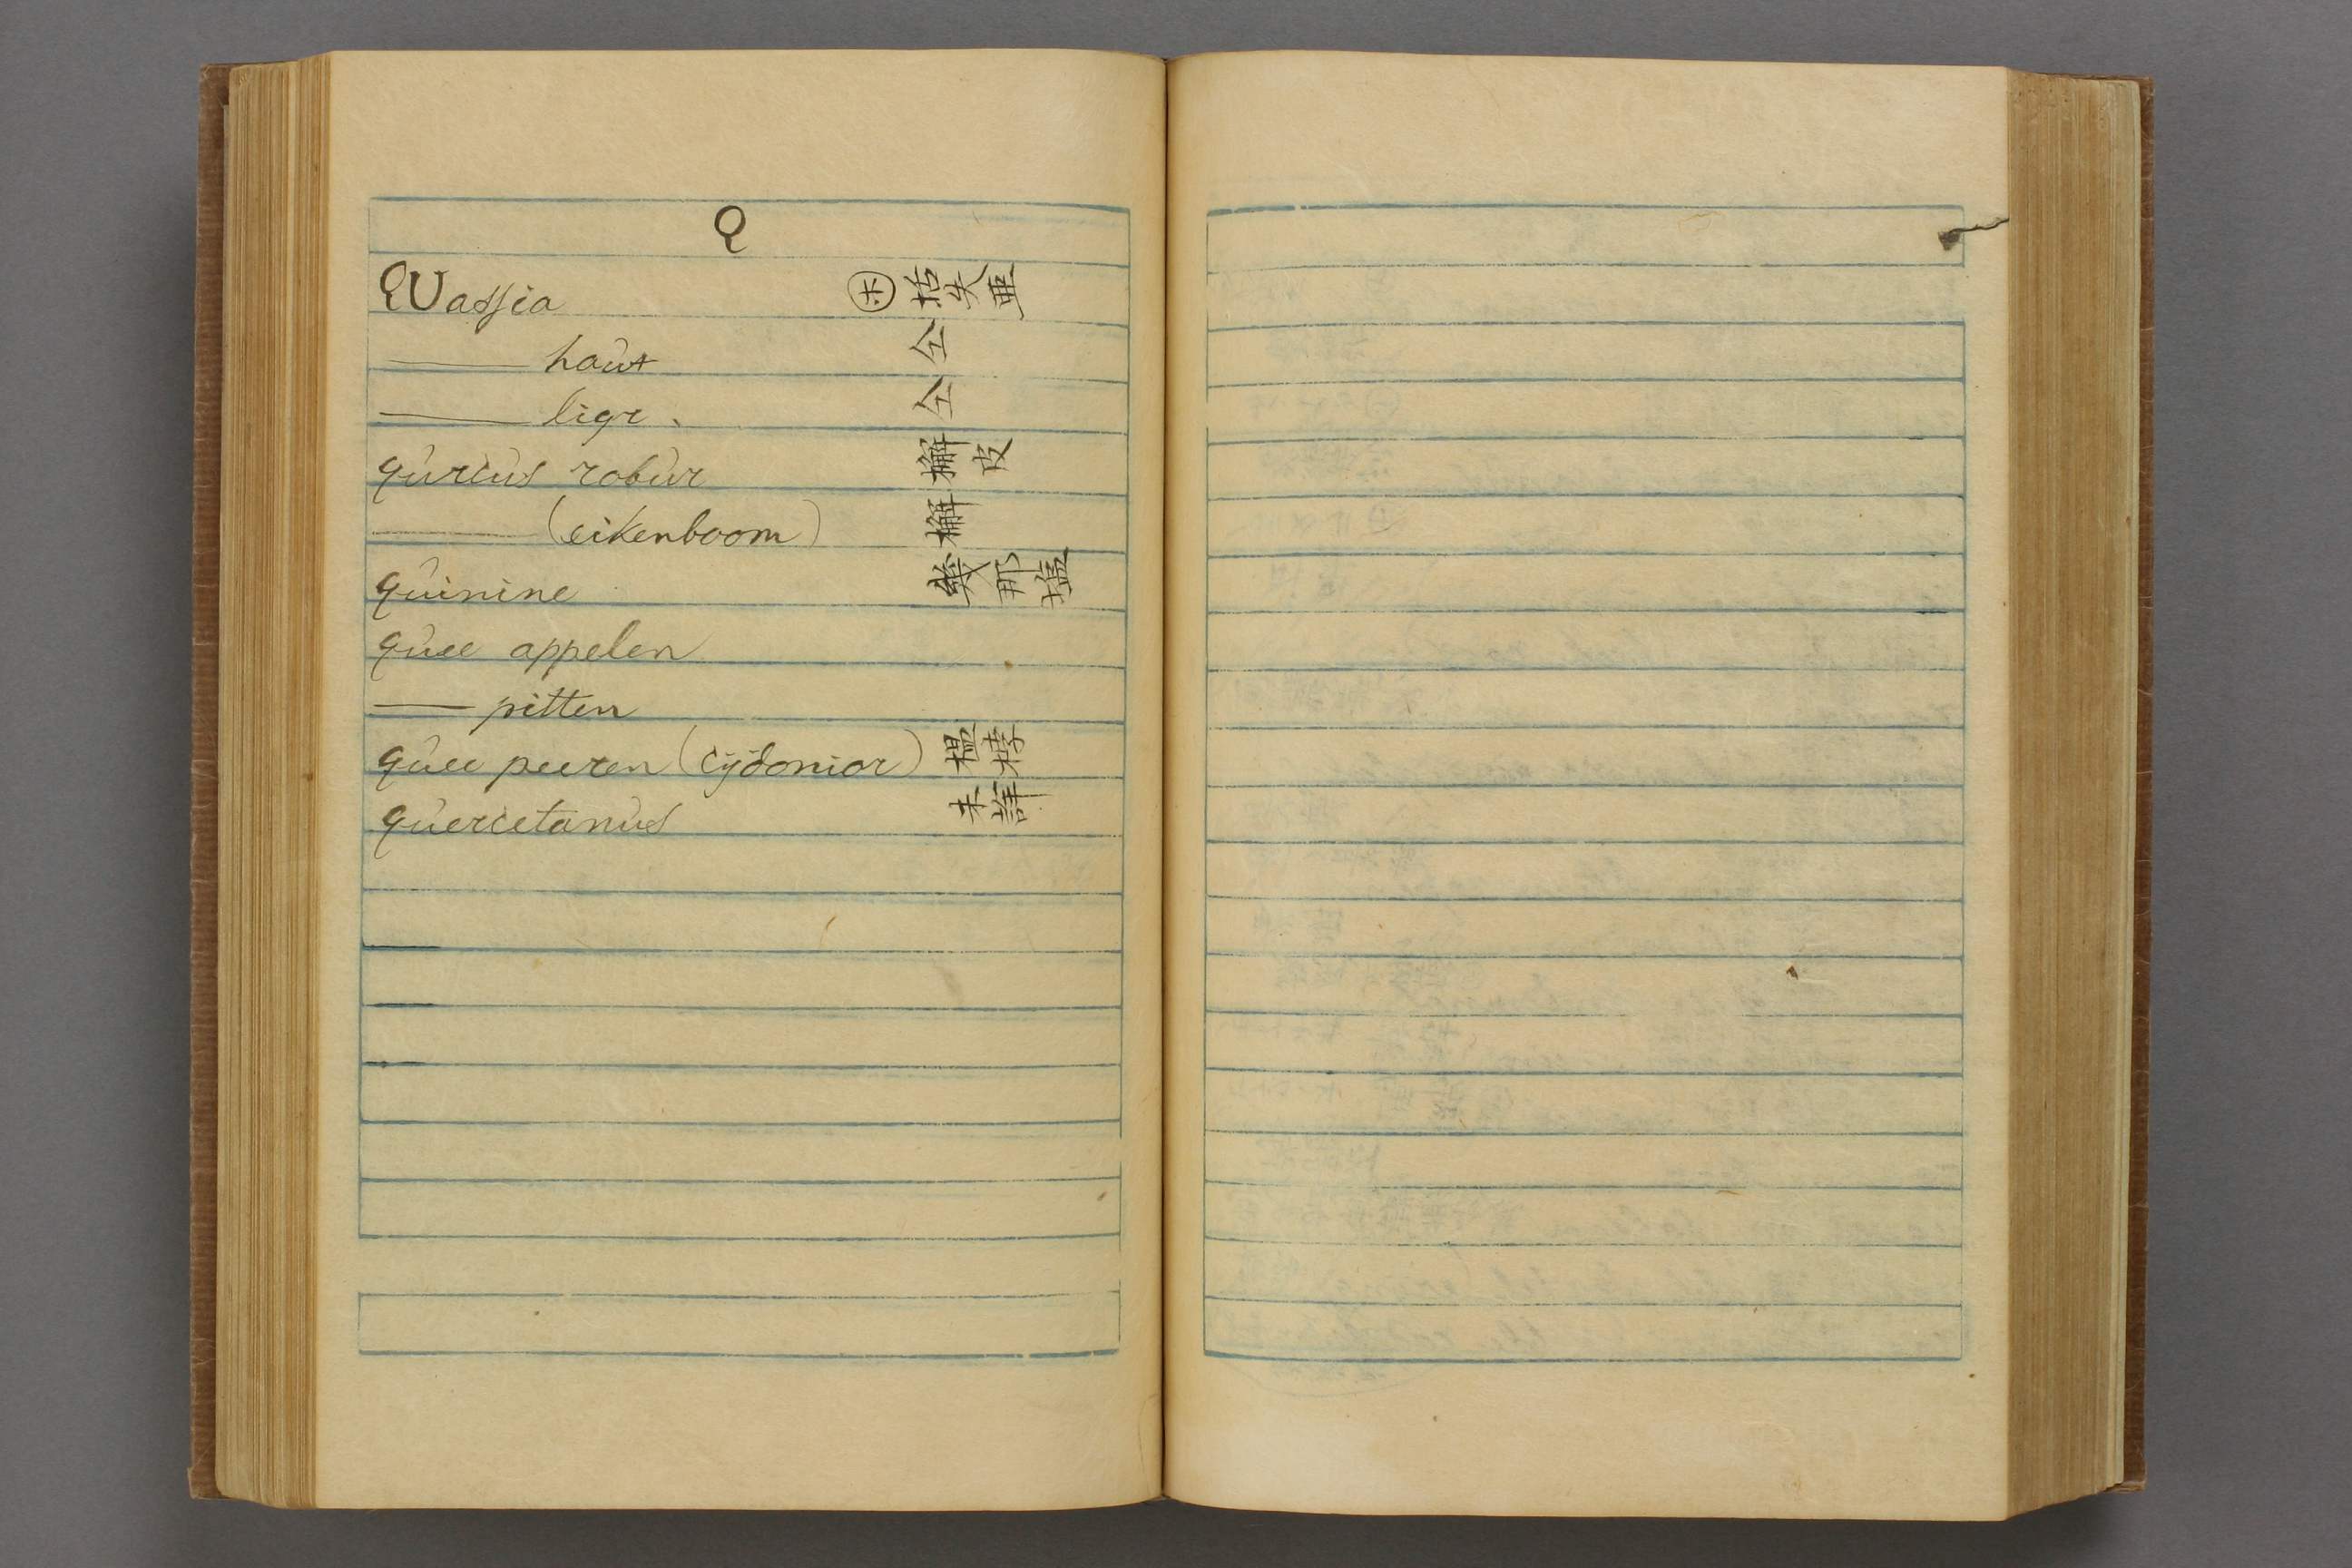 Q
QUassia ㊍ 括失亜
—— hout 仝
—— ligr. 仝
qurcus robur 檞皮
—— (eikenboom) 檞
quinine 幾那塩
quee appelen
— pitten
quee peeren (cydonior) 榲桲
quercetanus 未詳